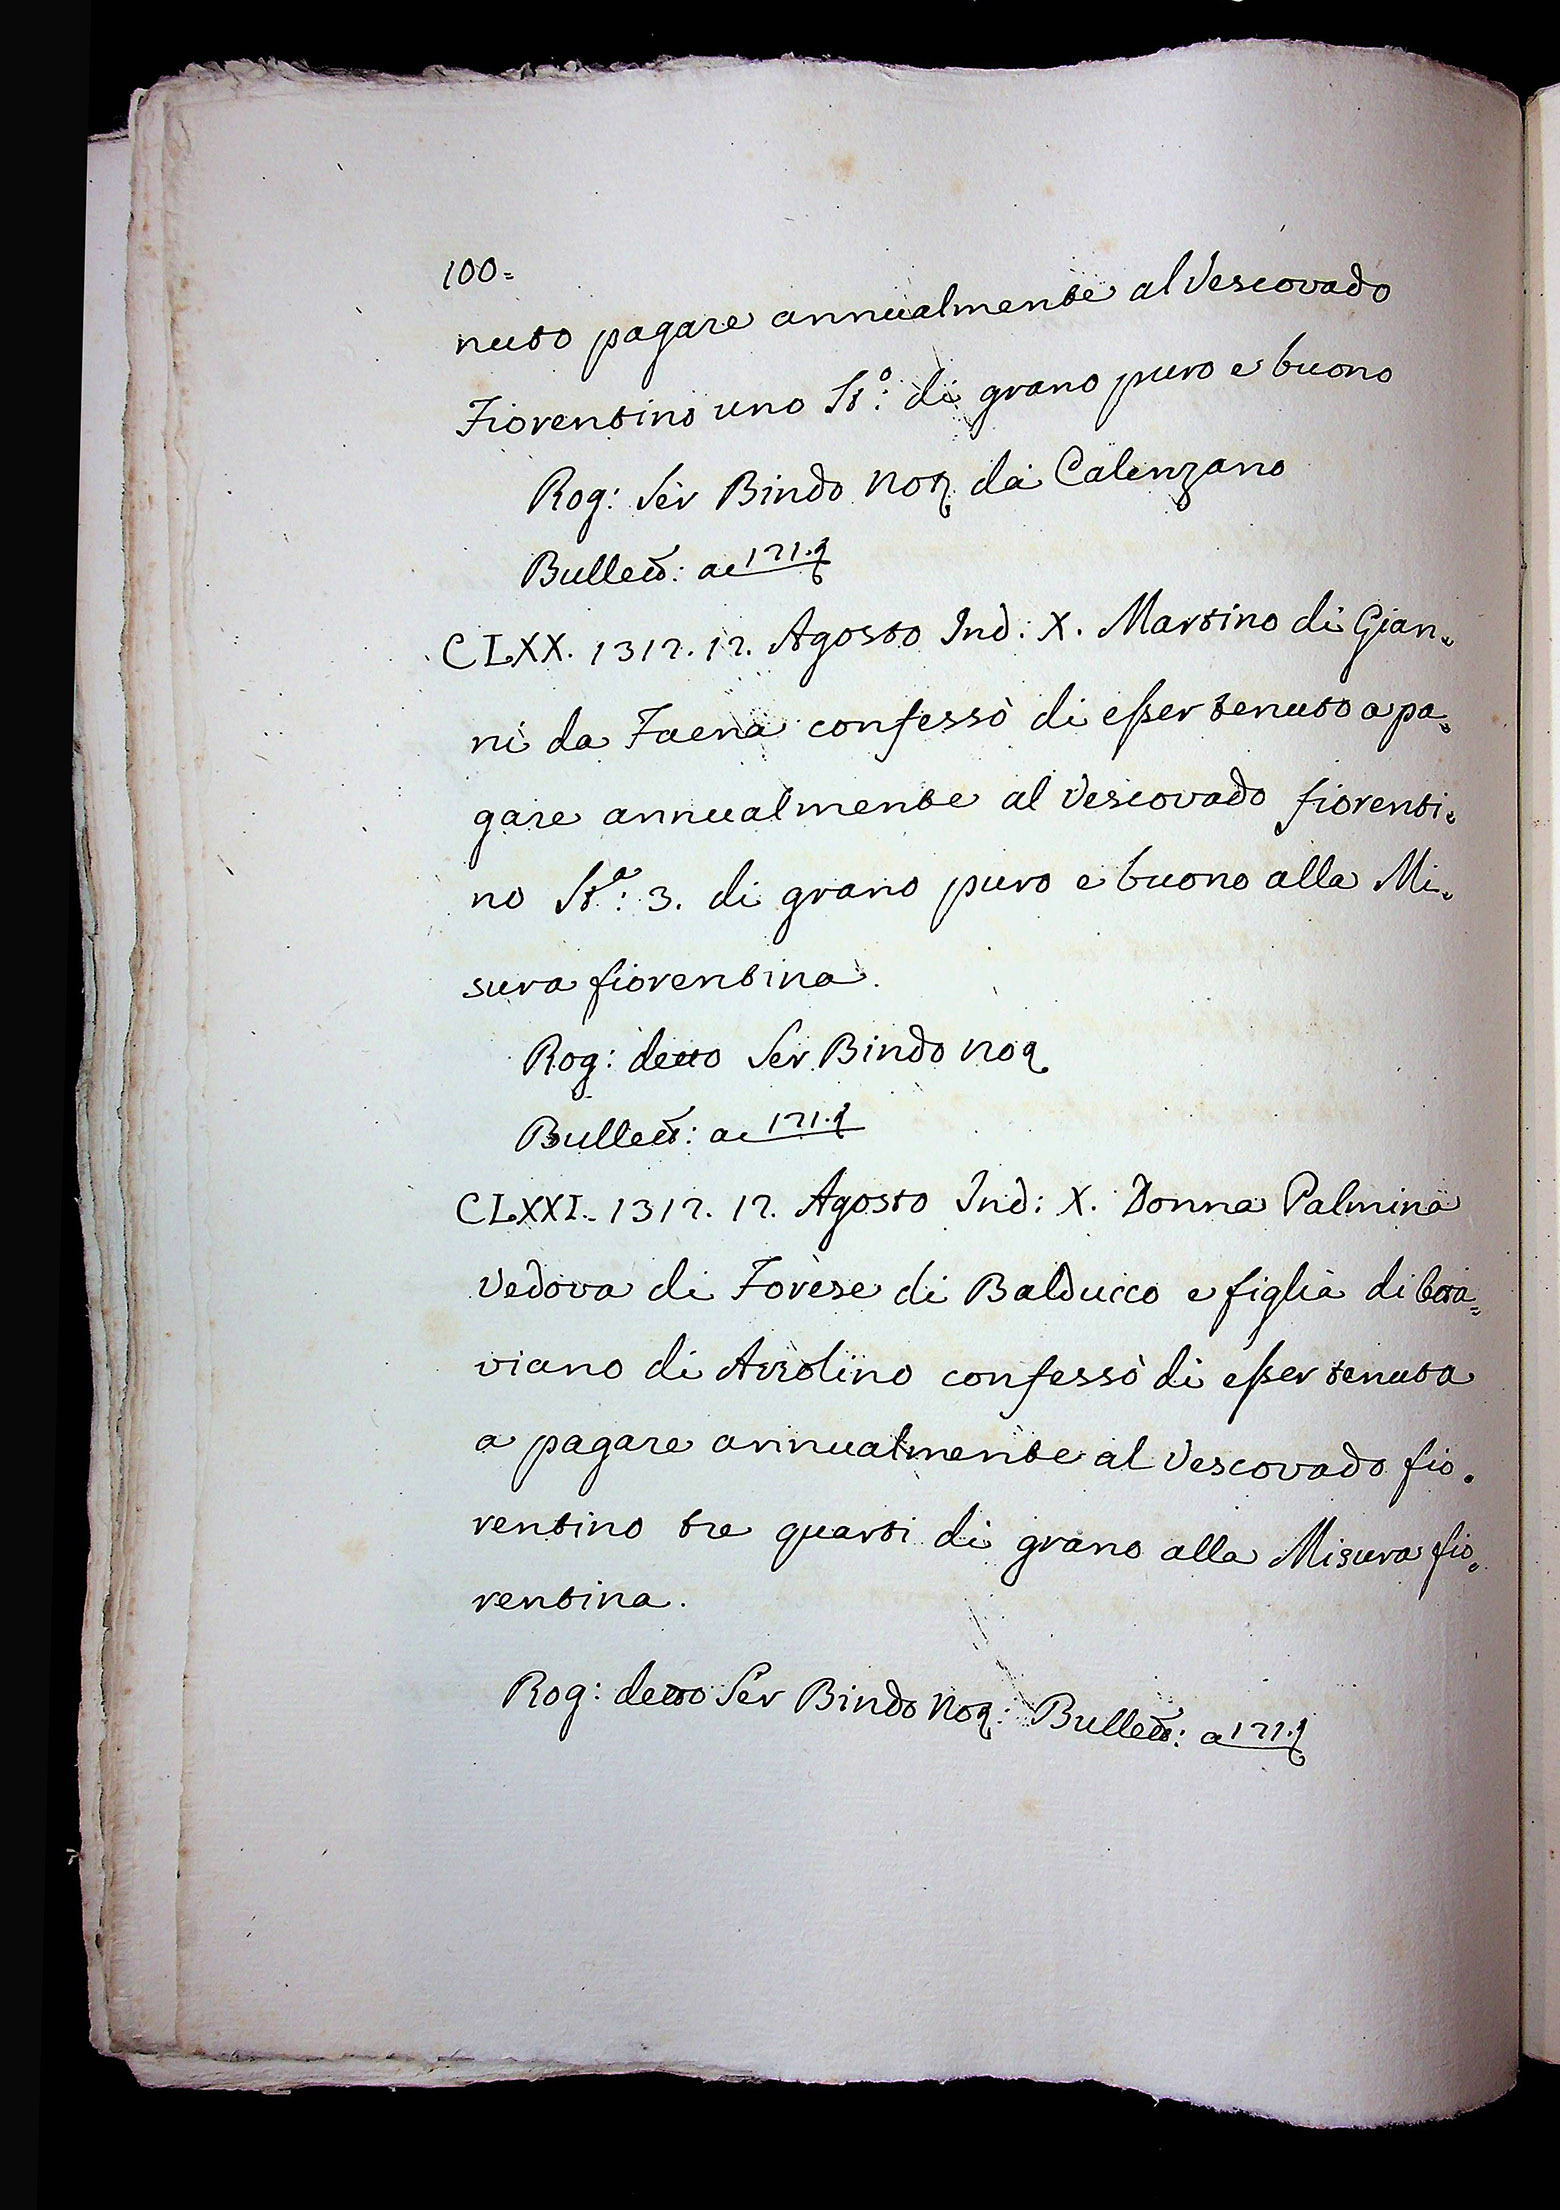 100=
nuto pagare annualmente al Vescovado
Fiorentino uno St.º: di grano puro e buono
Rog: Ser Bindo Not. da Calenzano
Bullett: a c 121. t
CLXX. 1312. 12. Agosto Ind: X. Martino di Gian=
ni da Faena confessò di esser tenuto a pa=
gare annualmente al Vescovado fiorenti=
no St.ª: 3. di grano puro e buono alla Mi=
sura fiorentina.
Rog: detto Ser Bindo Not.
Bullett: a c 121. t
CLXXI. 1312. 12. Agosto Ind: X. Donna Palmina
Vedova di Forese di Balducco e figlia di Otta=
viano di Azzolino confessò di esser tenuta
a pagare annualmente al Vescovado fio=
rentino tre quarti di grano alla Misura fio=
rentina.
Rog: detto Ser Bindo Not: Bullett: a 121. t